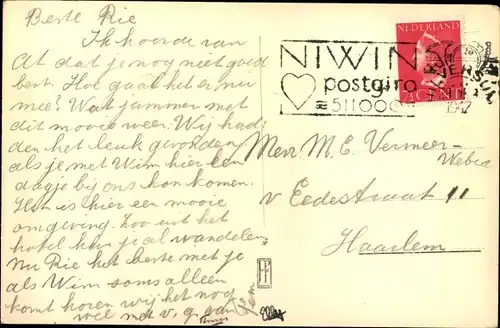 Beste Rie
Ik hoorde van
At dat je nog niet goed
bent. Hoe gaat het er nu
mee? Wat jammer met
dit mooie weer. Wij had
den het leuk gevonden
als je met Wim hier een
dagje bij ons kon komen.
Het is hier een mooie
omgeving. Zoo uit het
hotel kun je al wandelen.
Nu Rie het beste met je
als Wim soms alleen
komt horen wij het nog
wel met v. g. van
NEDERLAND
NIWIN
postgiro
511000
Mevr M. E. Vermeer-
v Eedestraat 11
Haarlem